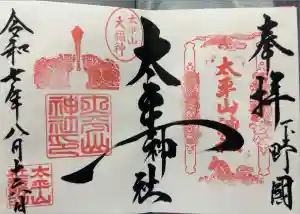 奉拝 下野國
太平山神社
太平山
大福神
太平神社
太平山
神社印
令和七年八月十六日
太平山